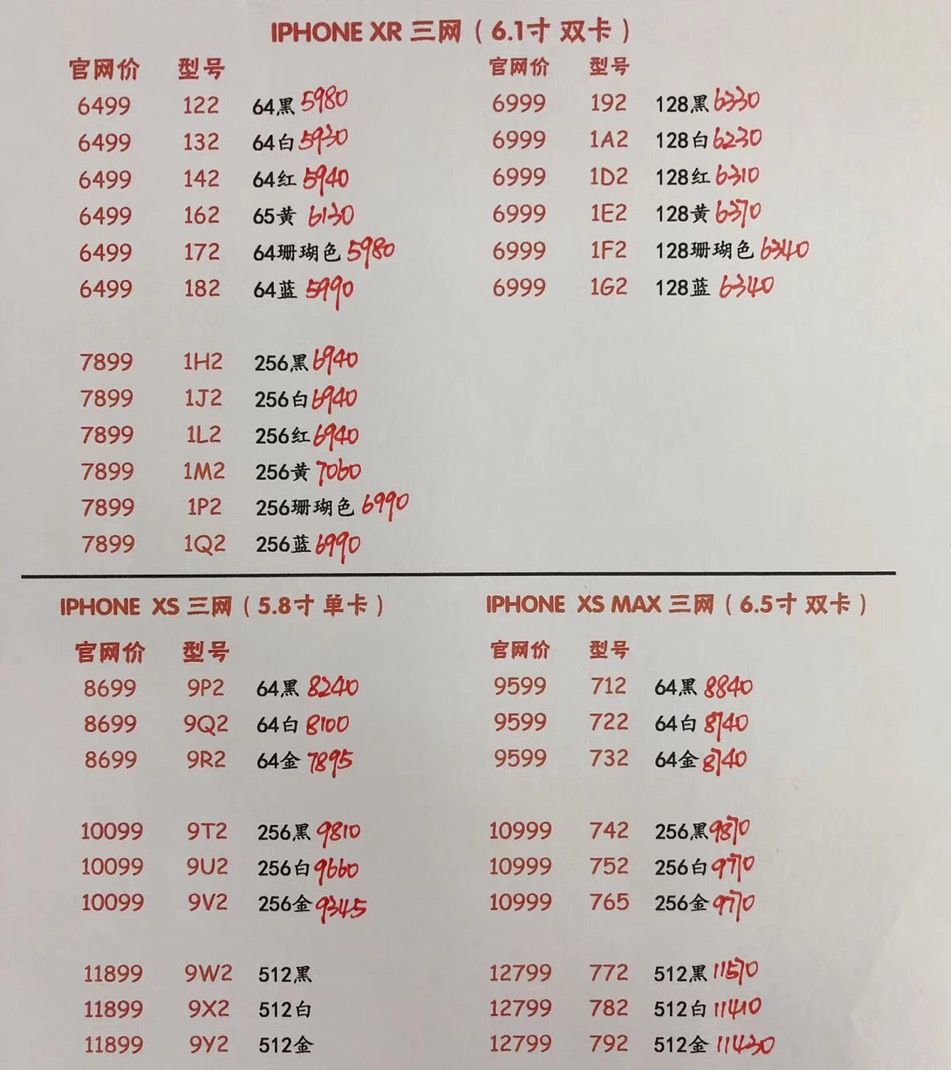 IPHONE XR 三网（6.1寸 双卡）
官网价 型号 官网价 型号
6499 122 64黑 5980 6999 192 128黑 6330
6499 132 64白 5930 6999 1A2 128白 6230
6499 142 64红 5940 6999 1D2 128红 6310
6499 162 65黄 6130 6999 1E2 128黄 6370
6499 172 64珊瑚色 5980 6999 1F2 128珊瑚色 6340
6499 182 64蓝 5990 6999 1G2 128蓝 6340
7899 1H2 256黑 6940
7899 1J2 256白 6940
7899 1L2 256红 6940
7899 1M2 256黄 7060
7899 1P2 256珊瑚色 6990
7899 1Q2 256蓝 6990
IPHONE XS 三网（5.8寸 单卡） IPHONE XS MAX 三网（6.5寸 双卡）
官网价 型号 官网价 型号
8699 9P2 64黑 8240 9599 712 64黑 8840
8699 9Q2 64白 8100 9599 722 64白 8740
8699 9R2 64金 7895 9599 732 64金 8740
10099 9T2 256黑 9810 10999 742 256黑 9870
10099 9U2 256白 9660 10999 752 256白 9770
10099 9V2 256金 9345 10999 765 256金 9770
11899 9W2 512黑 12799 772 512黑 11570
11899 9X2 512白 12799 782 512白 11410
11899 9Y2 512金 12799 792 512金 11430